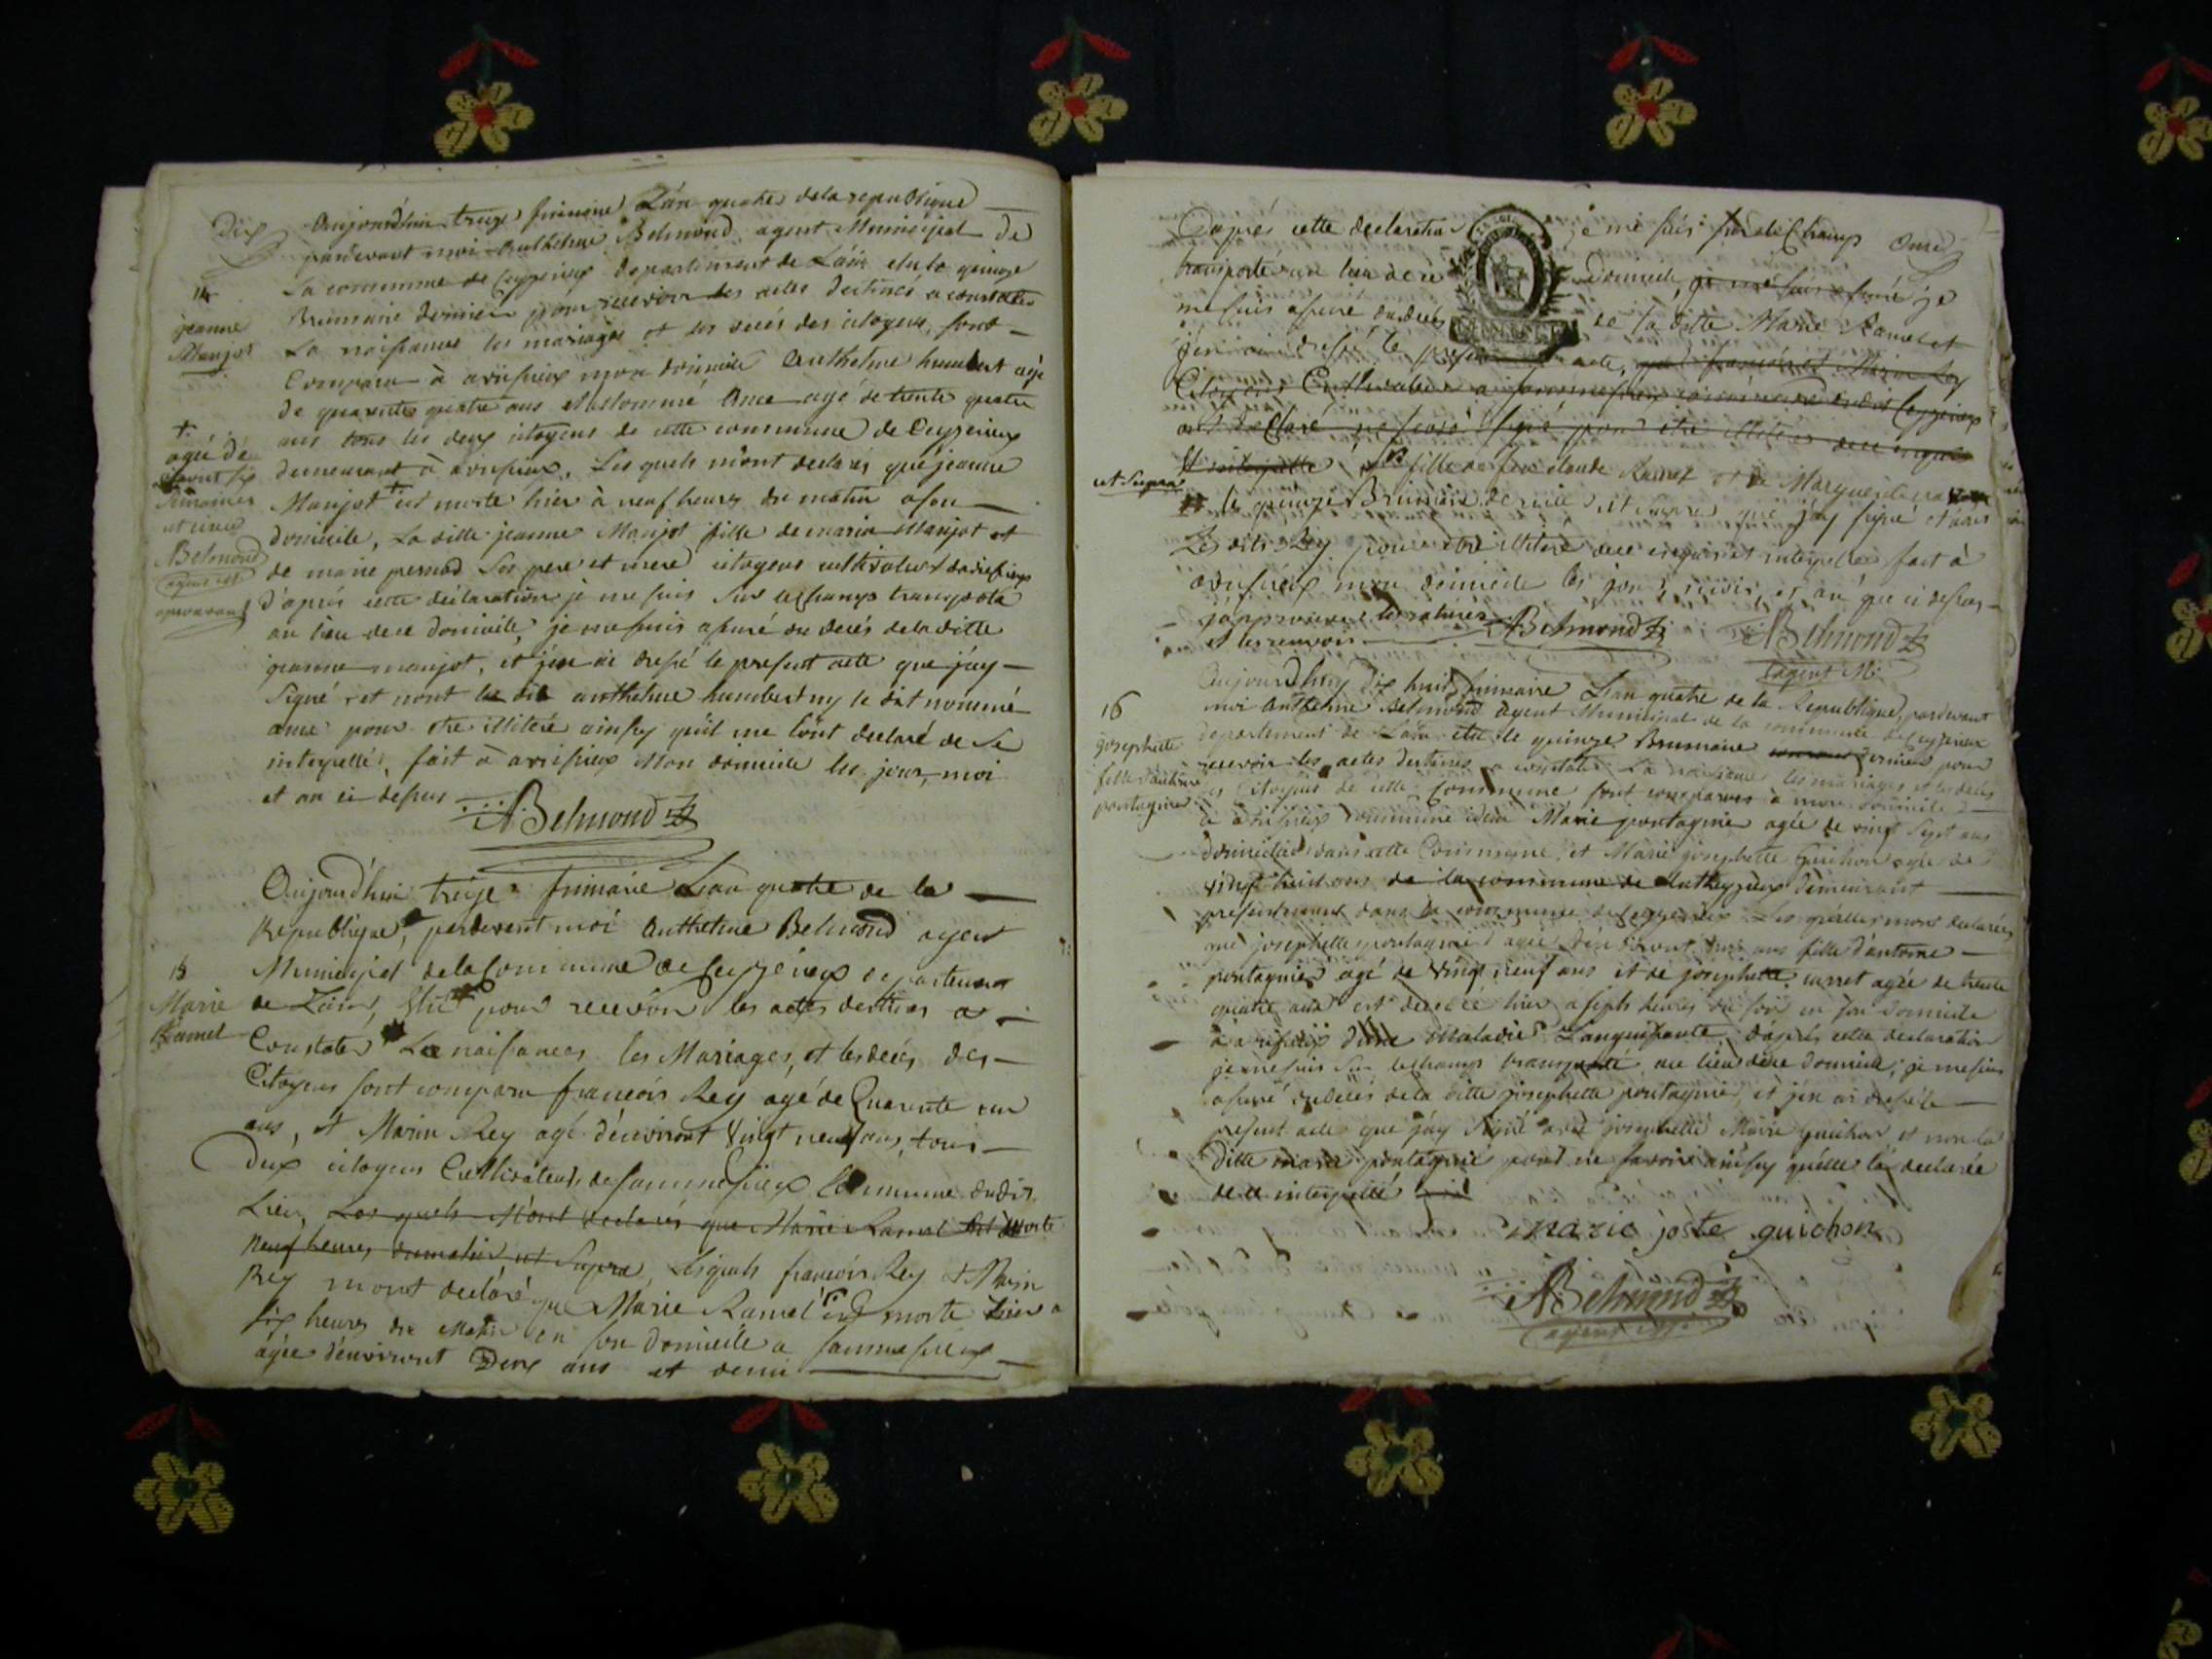 Dix
Aujourd'hui treize frimaire L'án quatre de la republique
pardevant moi Anthelme Belmond agent Municipal De
La commune de Ceyzerieux departement de L'ain elu le quinze
Brumaire dernier pour recevoir les actes destinés a constater
La naissances les mariages et les decés des citoyens, sont
Comparu à avrissieux mon domicile Anthelme humbert agé
de quarante quatre ans et le nommé Ame agé de trente quatre
ans tous les deux citoyens de cette commune de Ceyzerieux
demeurant à avrissieux. Les quels m'ont declarés que jeanne
Manjot + est morte hier à neuf heures du matin a son
domicile, La ditte jeanne Manjot fille de marin Manjot et
de marie pernod Ses pere et mere citoyens cultivateurs
d'aprés cette déclaration je me suis Sur le champ transporté
au lieu de ce domicile, je me suis assuré du decés de la ditte
jeanne manjot, et j'en ai dressé le present acte que j'ay
Signé et nont le dit anthelme humbert ny le dit nommé
ame pour etre illiteré ainsy qu'il me l'ont declaré de Ce
interpellé, fait à avrissieux Mon domicile les jour, moi
et an ci dessus
ABelmond
14
jeanne
Manjot
+
agée de
Semaines
Belmond
agent
aprouvant
Aujourd'hui treize frimaire L'an quatre de la
Republique, pardevent moi Anthelme Belmond agent
Municipal de la Commune de Ceyzerieux departement
de L'ain, Elu pour recevoir les actes destinés a
Constater La naissances les Mariages, et les decés des
Citoyens sont comparu francois Rey agé de Quarente un
ans, et Marin Rey agé d'environt Vingt neuf ans, tous
Deux citoyens Cultivateurs de Commune dudit
Lieu, Les quels M'ont declarés que Marie Ramel Est Morte
Neuf heures du matin ut Supra, Lesquels francois Rey & Marin
Rey mont declaré que Marie Ramel est morte hier a
six heures du Matin en son domicile a
agée d'environt Deux ans et demi
15
Marie
Ramel
D'aprés cette declaration je me suis sur le Champ
transporté au lieu de ce domicile, je me suis assuré je
me suis assuré du decés de la ditte Marie Ramel et
j'en ai dressé le present acte, francois et Marin Rey
Citoyens Cultivateurs
ont declaré ne savoir signé pour etre illiteré de ce enquis
et interpellé, fille de feu claude Ramel et de Marguerite
ut Supra
le quinze Brumaire que j'ay signé et
Les dits Rey pour etre illiteré de ce enquis et interpellé fait à
avrissieux mon domicile les jour, mois, et an que ci dessus
j'approuve les ratures
et les renvois
ABelmond
ABelmond
l'agent M.
Aujourd'huy Dix huit frimaire L'an quatre de la Republique, pardevant
moi Anthelme Belmond Agent Municipal de la commune de Ceyzerieux
departement de L'ain elu le quinze Brumaire dernier pour
recevoir les actes destinés a constater La naissance les mariages et les decés
des Citoyens de cette Commune sont comparues à mon domicile
à avrissieux commune idem Marie pontagnié agée de vingt Sept ans
domiciliée dans cette Commune, et Marie josephette Guichon agée de
vingt huit ans de la commune de demeurant
presentement dans la commune de Ceyzerieux. Les quelles m'ont declarées
que josephette pontagnié agée d'environt ans fille d'antoine
pontagnié agé de vingt neuf ans et de josephette agée de trente
quatre ans est decedée hier a sept heures du soir en son domicile
à avrissieux d'une Maladie Languissante, D'aprés cette declaration
je me suis Sur le champ transporté au lieu de ce domicile, je me suis
assuré du decés de la ditte josephette pontagnié, et j'en ai dressé le
present acte que j'ay Signé avec josephette Marie guichon et non la
Ditte marie pontagnié pour ne savoir ainsy qu'elle l'a declarée
de ce interpellé
marie joste guichon
ABelmond
agent
16
josephette
fille d'antoine
pontagnier